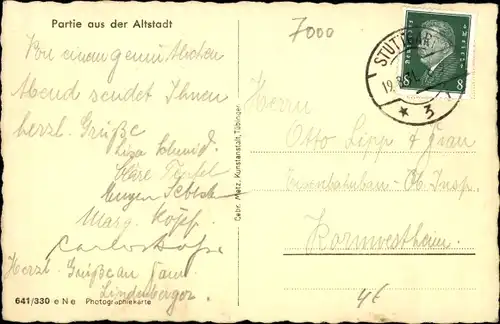 Partie aus der Altstadt
Von einem gemütlichen
Abend sendet Ihnen
herzl. Grüße
Liza Schmid.
Kläre
Eugen
Marg.
Herzl. Grüße an Fam.
Lindenberger.
641/330 e N e Photographiekarte
Gebr. Metz, Kunstanstalt, Tübingen
7000
STUTTGART
19.
★ 3
Deutsches Reich
8 8
Herrn
Otto Lipp & Frau
Eisenbahnbau-Ob. Insp.
Kornwestheim.
4€